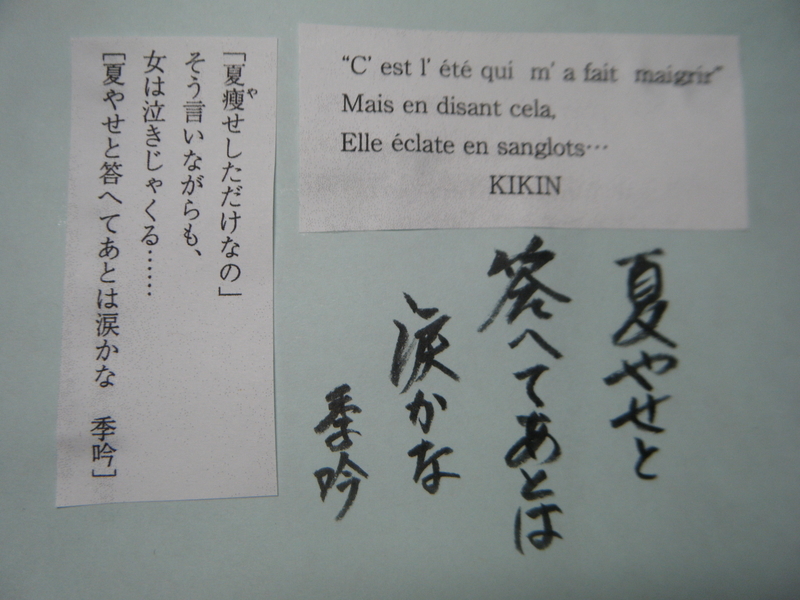 “C’ est l’ été qui m’ a fait maigrir”
Mais en disant cela,
Elle éclate en sanglots…
KIKIN
「夏瘦せしただけなの」
や
そう言いながらも、
女は泣きじゃくる……
［夏やせと答へてあとは涙かな　季吟］
夏やせと
答へてあとは
涙かな
季吟